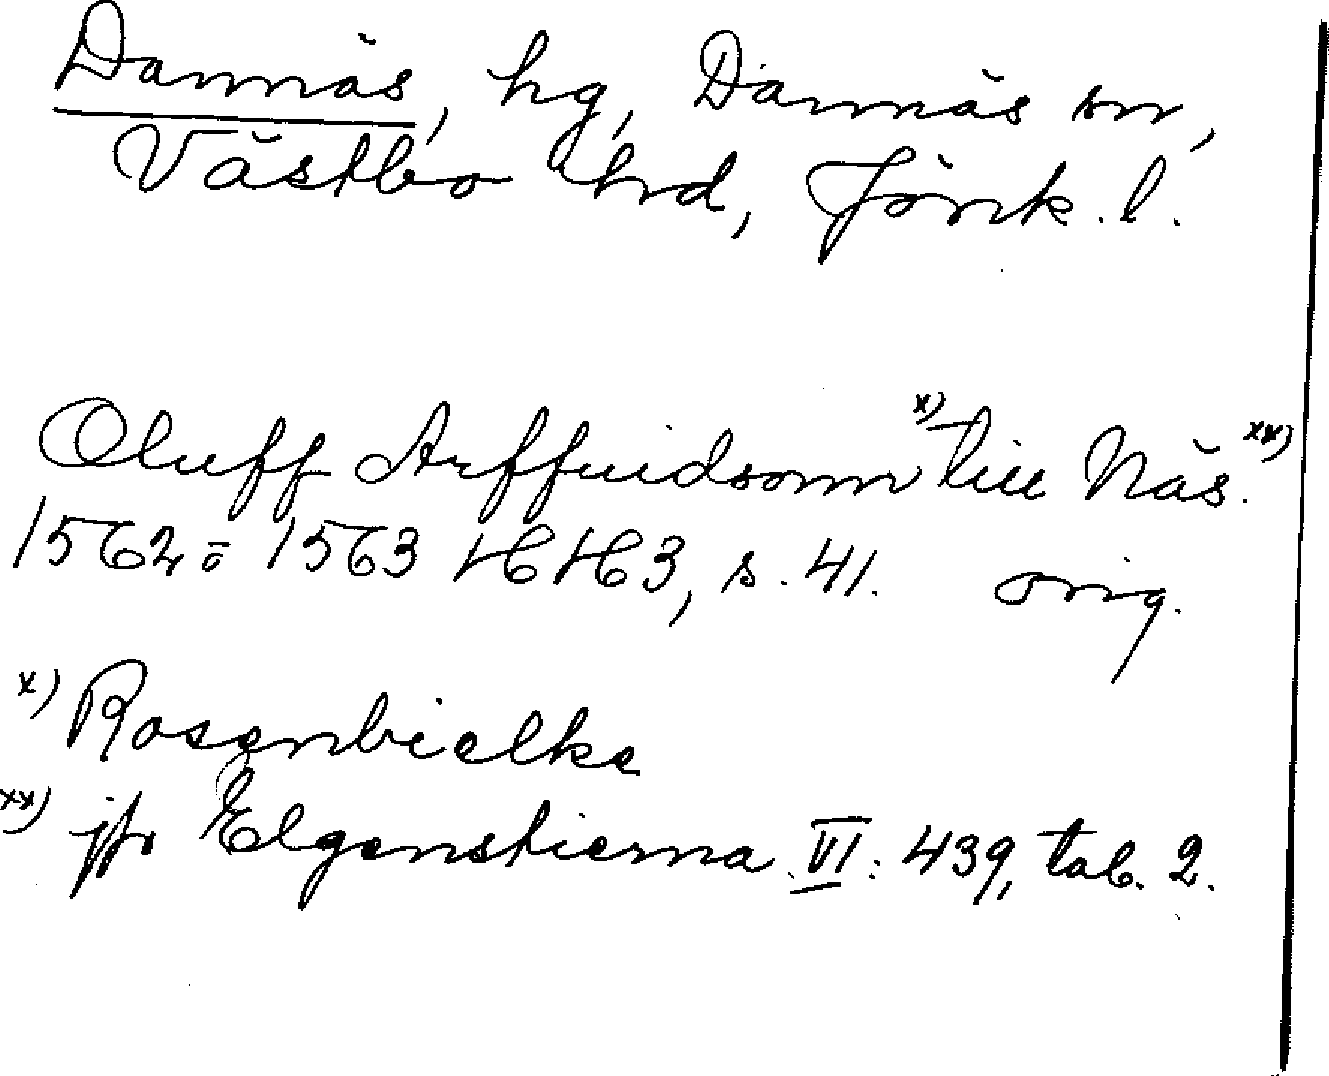 Dannäs, hg, Dannäs sn,
Västbo hrd, Jönk. l.
Oluff Arffuidsonn x) till Näs. xx)
1562 ö 1563 HH3, s. 41. orig.
x) Rosenbielke
xx) jfr Elgenstierna VI: 439, tab. 2.